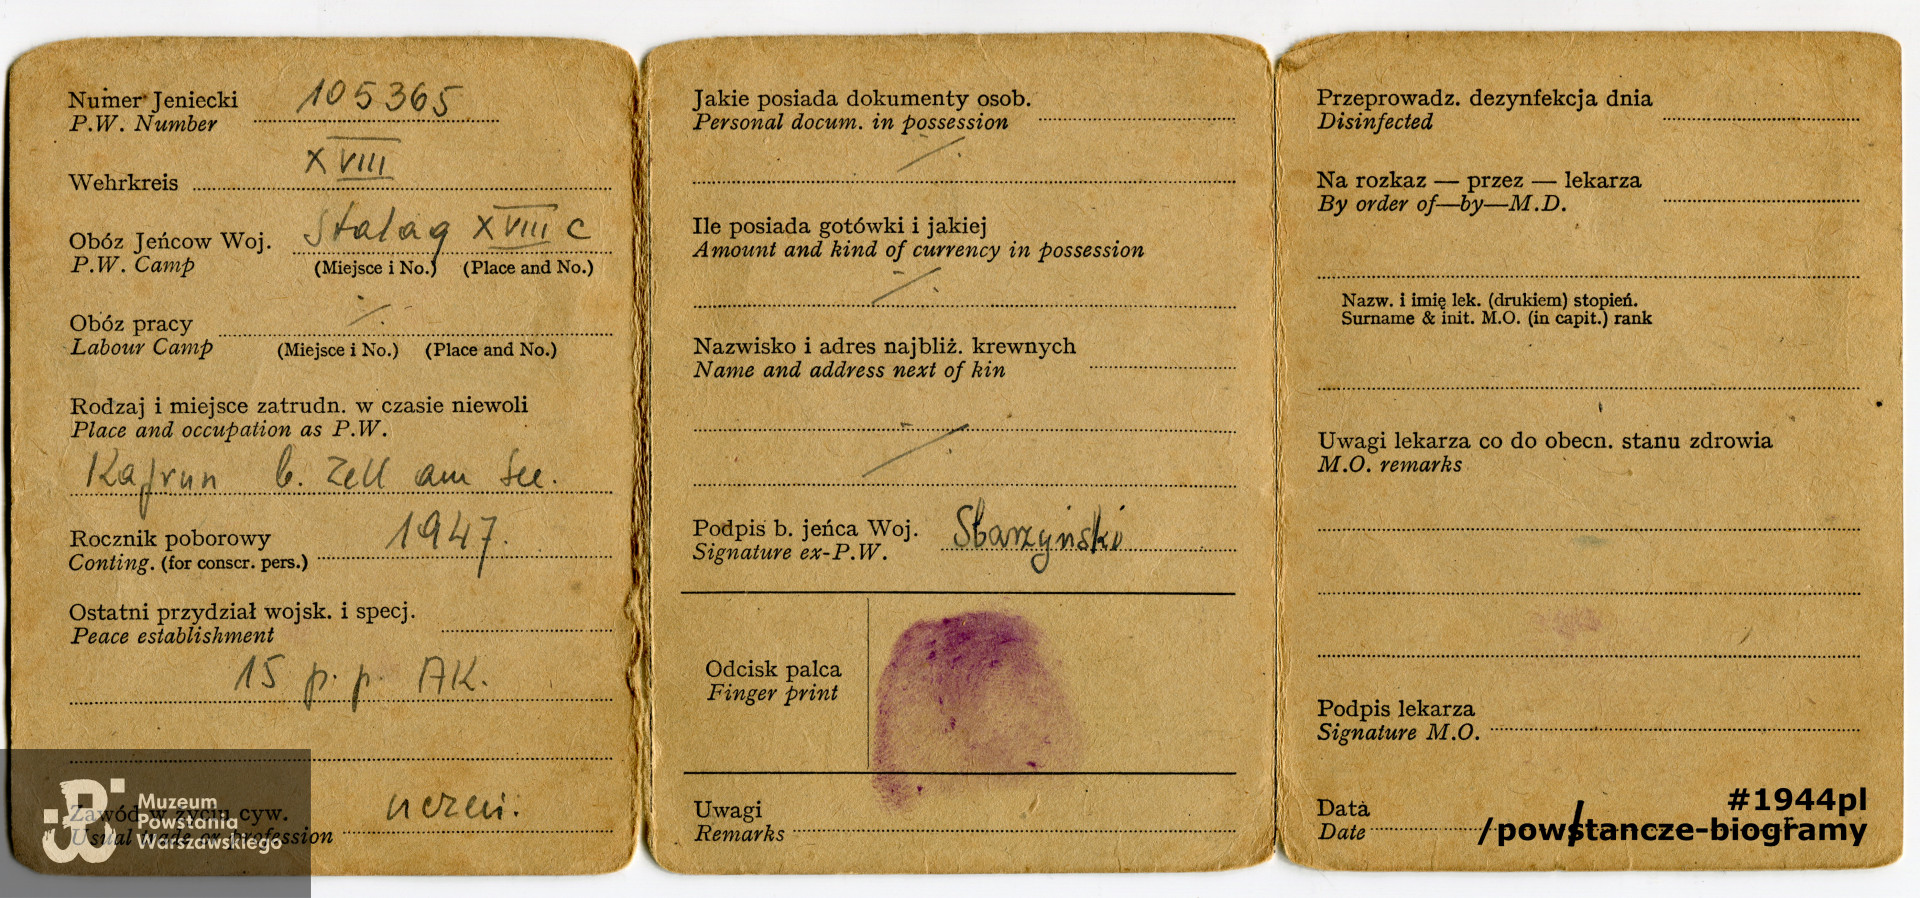 Numer Jeniecki 105365
P.W. Number
Wehrkreis XVIII
Obóz Jeńcow Woj. Stalag XVIII C
P.W. Camp (Miejsce i No.) (Place and No.)
Obóz pracy ·/.
Labour Camp (Miejsce i No.) (Place and No.)
Rodzaj i miejsce zatrudn. w czasie niewoli
Place and occupation as P.W.
Kaprun b. Zell am See.
Rocznik poborowy 1947.
Conting. (for conscr. pers.)
Ostatni przydział wojsk. i specj.
Peace establishment
15 p.p. AK.
Zawód w życiu cyw. uczeń.
Usual trade or profession
Muzeum
Powstania
Warszawskiego
Jakie posiada dokumenty osob.
Personal docum. in possession
·/.
Ile posiada gotówki i jakiej
Amount and kind of currency in possession
·/.
Nazwisko i adres najbliż. krewnych
Name and address next of kin
·/.
Podpis b. jeńca Woj. Starzyński
Signature ex-P.W.
Odcisk palca
Finger print
Uwagi
Remarks
Przeprowadz. dezynfekcja dnia
Disinfected
Na rozkaz — przez — lekarza
By order of—by—M.D.
Nazw. i imię lek. (drukiem) stopień.
Surname & init. M.O. (in capit.) rank
Uwagi lekarza co do obecn. stanu zdrowia
M.O. remarks
Podpis lekarza
Signature M.O.
Data
Date
#1944pl
/powstancze-biogramy